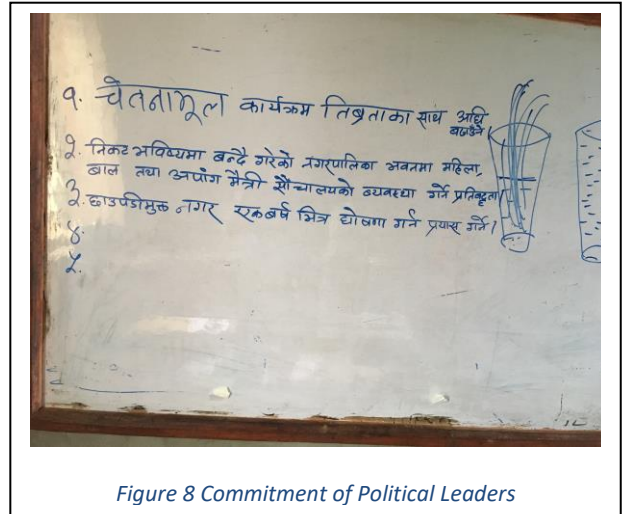 १. चेतनामूल कार्यक्रम तिब्रताका साथ अघि
बढाउने
२. निकट भविष्यमा बन्दै गरेको नगरपालिका भवनमा महिला,
बाल तथा अपांग मैत्री सौचालयको व्यवस्था गर्ने प्रतिबद्धता।
३. छाउपडीमुक्त नगर एकबर्ष भित्र घोषणा गर्न प्रयास गर्ने।
४.
५.
Figure 8 Commitment of Political Leaders